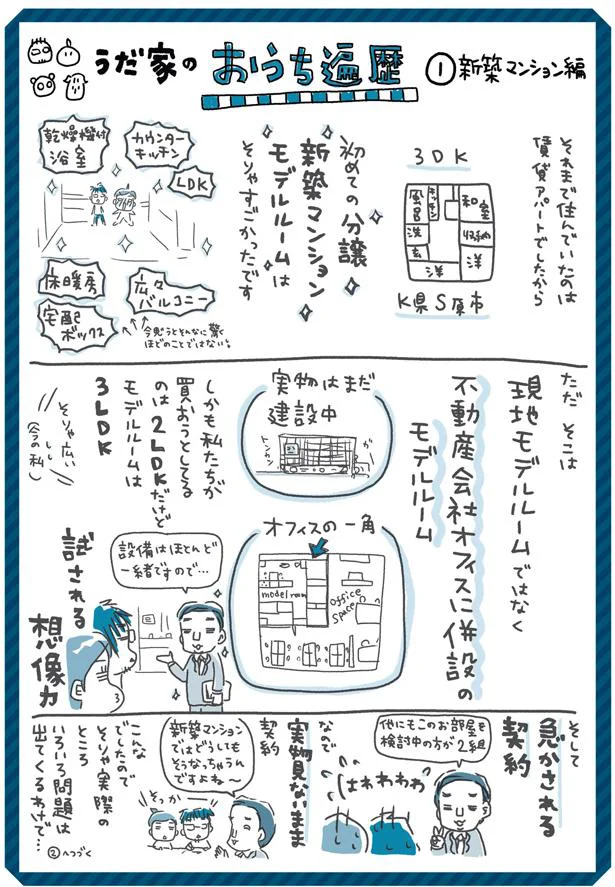 うだ家の おうち遍歴 ①新築マンション編
それまで住んでいたのは
賃貸アパートでしたから
3DK
風呂
キッチン
和室
洗
収納
玄
洋
洋
K県S原市
初めての分譲
新築マンション
モデルルームは
そりゃすごかったです
乾燥機付
浴室
カウンター
キッチン
LDK
床暖房
広々
バルコニー
宅配
ボックス
今思うとそんなに驚く
ほどのことではない。
ただ そこは
現地モデルルームではなく
不動産会社オフィスに併設の
モデルルーム
実物はまだ
建設中
トンカン
オフィスの一角
model room
office
space
しかも私たちが
買おうとしてる
のは2LDKだけど
モデルルームは
3LDK
そりゃ広いし…
(今の私)
設備はほとんど
一緒ですので…
試される
想像力
そして
急かされる
契約
他にもこのお部屋を
検討中の方が2組
はわわわわ
なので
実物見ないまま
契約
新築マンション
ではどうしても
そうなっちゃうん
ですよね〜
そっか
こんな
でしたので
そりゃ実際の
ところ
いろいろ問題は
出てくるわけで…
②へつづく